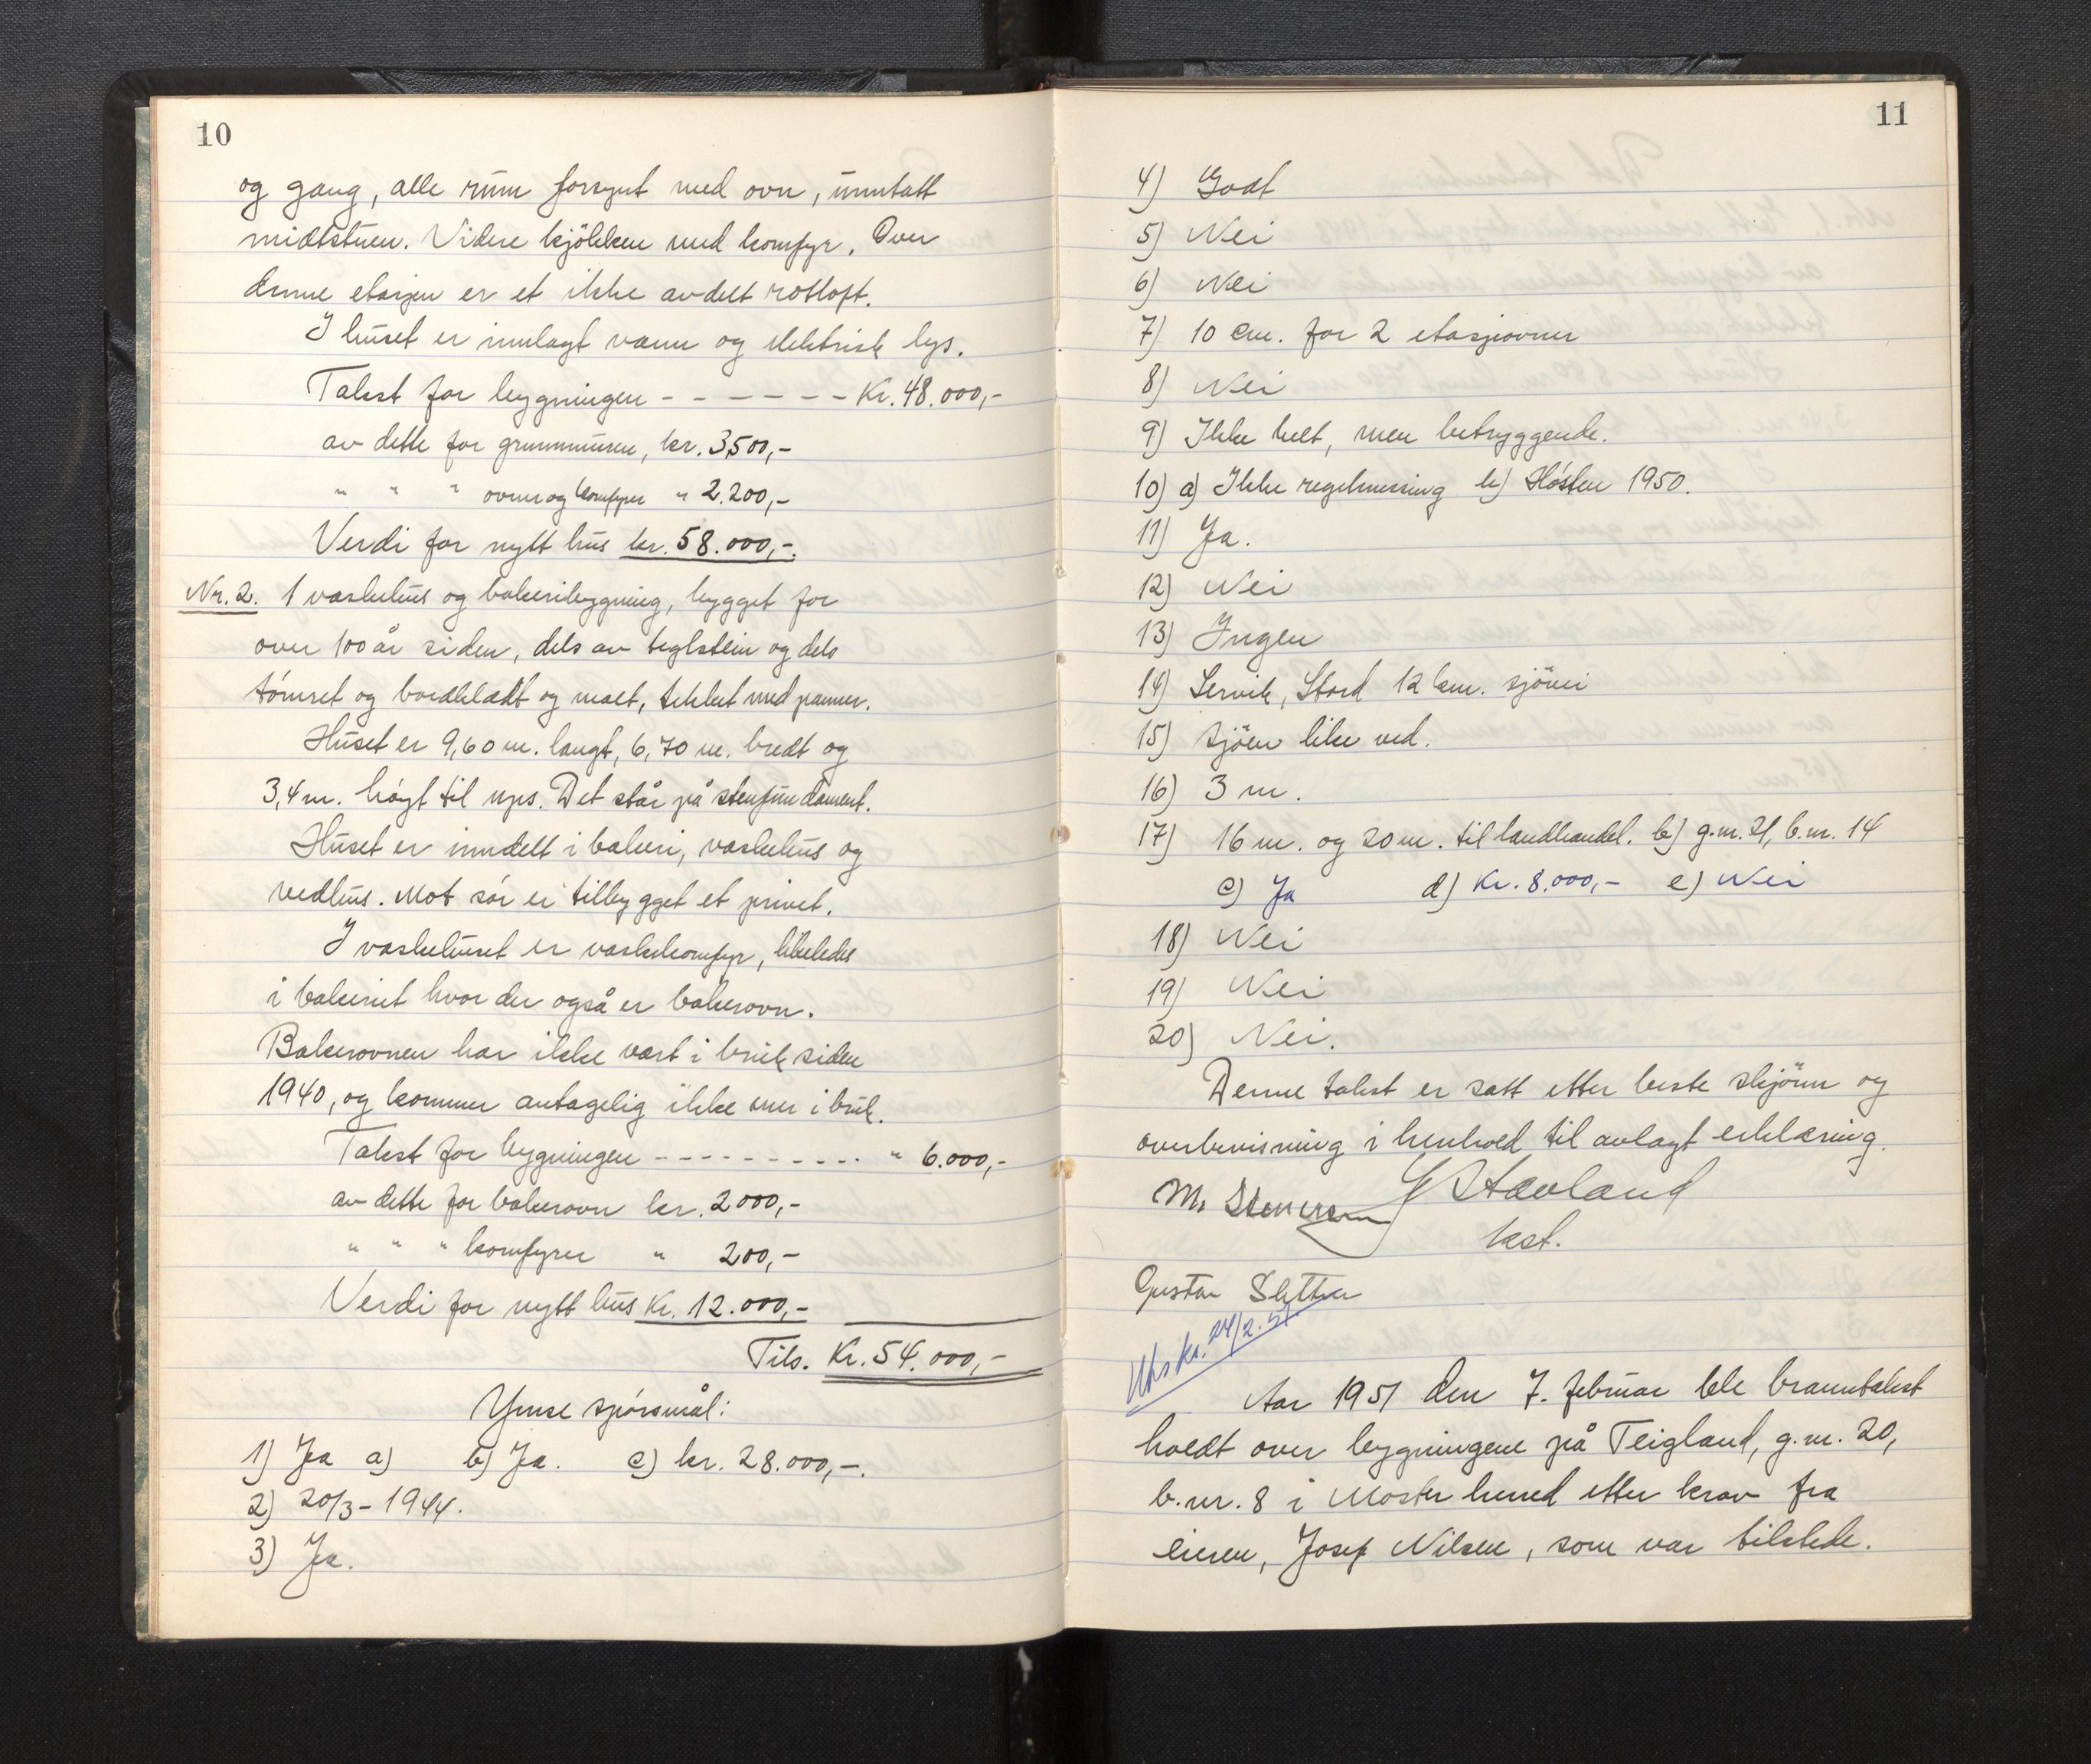 10
og gang, alle rum forsynt med ovn, unntatt
midtstuen. Videre kjökken med komfyr. Over
denne etasjen er et ikke avdelt rotloft.
I huset er innlagt vann og elektrisk lys.
Takst for bygningen - - - - - - - Kr. 48.000,-
av dette for grunnmuren, kr. 3500,-
" " " ovner og komfyrer " 2.200,-
Verdi for nytt hus kr. 58.000,-.
Nr. 2. 1 vaskehus og bakeribygning, bygget for
over 100 år siden, dels av teglstein og dels
tómret og bordkledt og malt, tekket med panner.
Huset er 9,60 m. langt, 6,70 m. bredt og
3,4 m. høyt til ups. Det står på stenfundament.
Huset er inndelt i bakeri, vaskehus og
vedhus. Mot sór er tilbygget et privet.
I vaskehuset er vaskekomfyr, likeledes
i bakeriet hvor der også er bakerovn.
Bakerovnen har ikke vært i bruk siden
1940, og kommer antagelig ikke mer i bruk.
Takst for bygningen - - - - - - - - - - " 6.000,-
av dette for bakerovn kr. 2000,-
" " " komfyrer " 200,-
Verdi for nytt hus Kr. 12.000,-
Tils. Kr. 54.000,-
Ymse spórsmål:
1) Ja a) b) Ja. c) kr. 28.000,-.
2) 20/3 - 1944.
3) Ja.
11
4) Godt
5) Nei
6) Nei
7) 10 cm. for 2 etasjeovner
8) Nei
9) Ikke helt, men betryggende.
10) a) Ikke regelmessing b) Hósten 1950.
11) Ja.
12) Nei
13) Ingen
14) Lervik, Stord 12 km. sjövei
15) Sjöen like ved.
16) 3 m.
17) 16 m. og 20 m. til landhandel. b) g.nr. 21, b.nr. 14
c) Ja d) Kr. 8.000,- e) Nei
18) Nei
19) Nei
20) Nei.
Denne takst er satt etter beste skjönn og
overbevisning i henhold til avlagt erklæring.
M. Stenersen Stavland
kst.
Gustav Sletten
Utskr. 24/2.51
Aar 1951 den 7. februar ble branntakst
holdt over bygningene på Teigland, g.nr. 20,
b.nr. 8 i Moster herred etter krav fra
eieren, Josef Nilsen, som var tilstede.